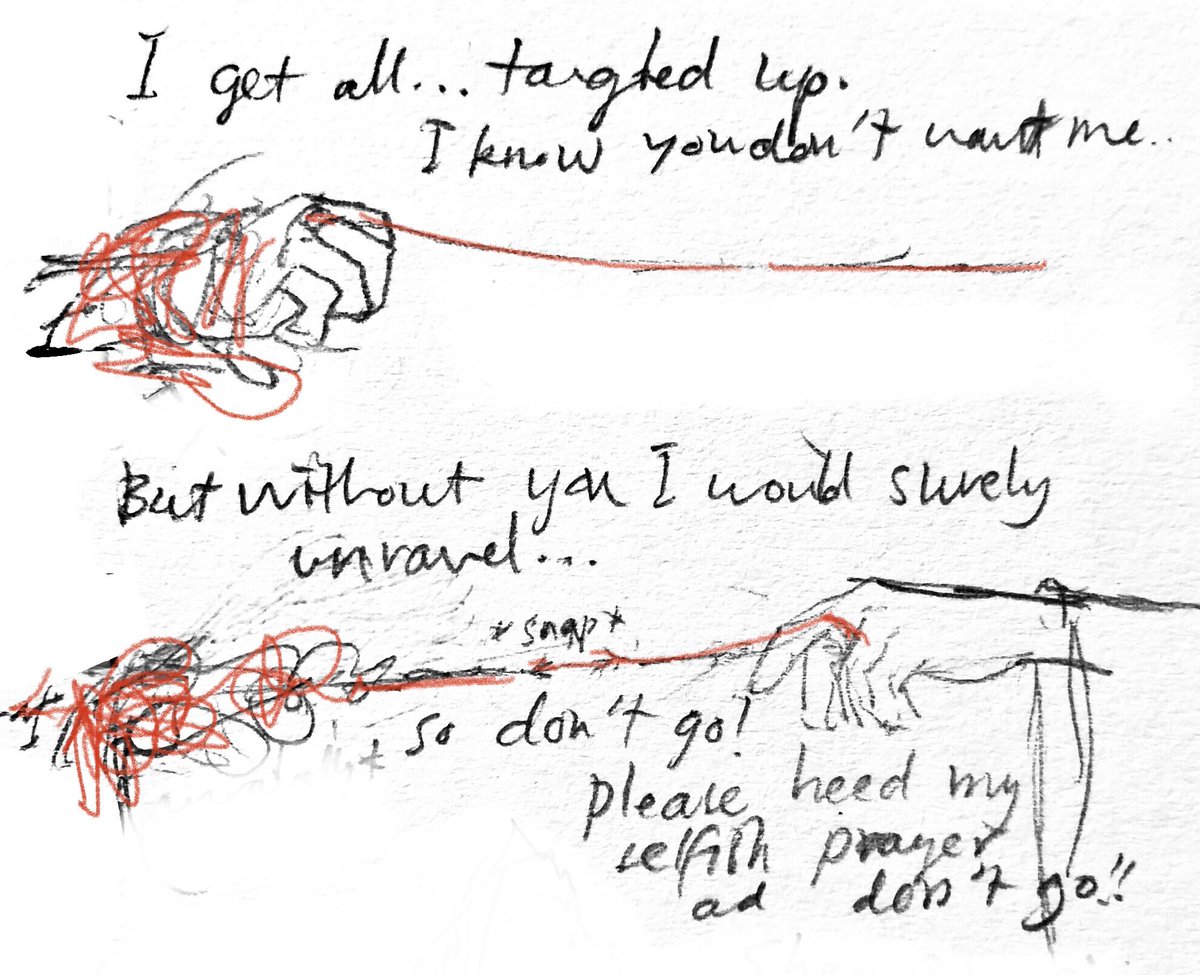 I get all... tangled up.
I know you don't want me..
But without you I would surely
unravel...
*snap*
so don't go!
please heed my
selfish prayer
ad don't go!!